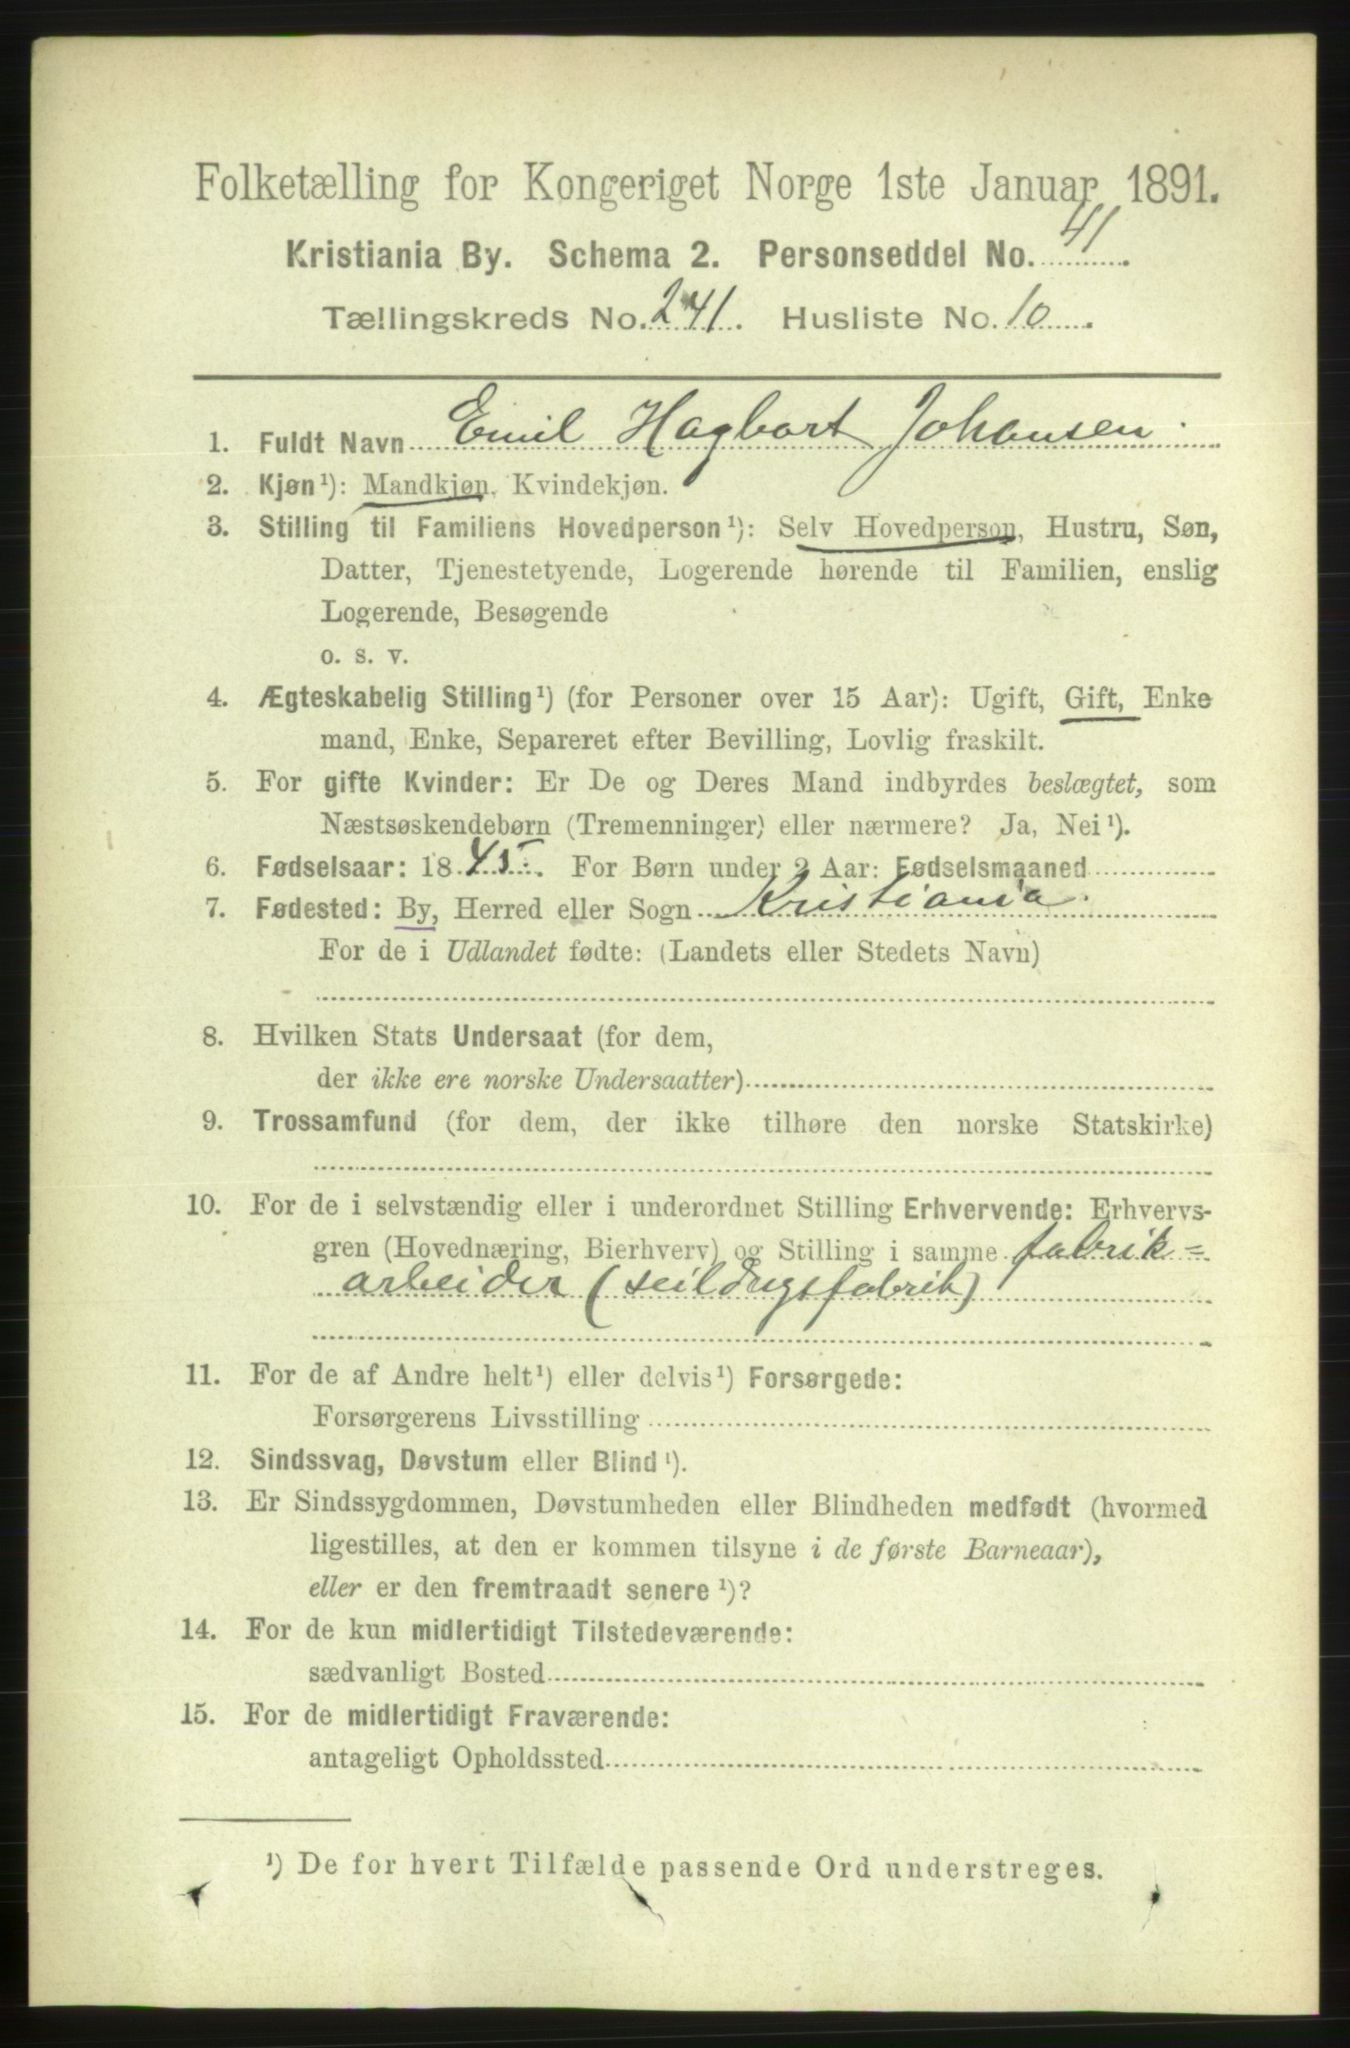 Folketælling for Kongeriget Norge 1ste Januar 1891.
Kristiania By. Schema 2. Personseddel No. 41
Tællingskreds No. 241. Husliste No. 10.
1. Fuldt Navn Emil Hagbart Johansen.
2. Kjøn¹): Mandkjøn, Kvindekjøn.
3. Stilling til Familiens Hovedperson¹): Selv Hovedperson, Hustru, Søn,
Datter, Tjenestetyende, Logerende hørende til Familien, enslig
Logerende, Besøgende
o. s. v.
4. Ægteskabelig Stilling¹) (for Personer over 15 Aar): Ugift, Gift, Enke
mand, Enke, Separeret efter Bevilling, Lovlig fraskilt.
5. For gifte Kvinder: Er De og Deres Mand indbyrdes beslægtet, som
Næstsøskendebørn (Tremenninger) eller nærmere? Ja, Nei¹).
6. Fødselsaar: 1845. For Børn under 2 Aar: Fødselsmaaned
7. Fødested: By, Herred eller Sogn Kristiania.
For de i Udlandet fødte: (Landets eller Stedets Navn)
8. Hvilken Stats Undersaat (for dem,
der ikke ere norske Undersaatter)
9. Trossamfund (for dem, der ikke tilhøre den norske Statskirke)
10. For de i selvstændig eller i underordnet Stilling Erhvervende: Erhvervs-
gren (Hovednæring, Bierhverv) og Stilling i samme fabrik=
arbeider (seildugsfabrik)
11. For de af Andre helt¹) eller delvis¹) Forsørgede:
Forsørgerens Livsstilling
12. Sindssvag, Døvstum eller Blind¹).
13. Er Sindssygdommen, Døvstumheden eller Blindheden medfødt (hvormed
ligestilles, at den er kommen tilsyne i de første Barneaar),
eller er den fremtraadt senere¹)?
14. For de kun midlertidigt Tilstedeværende:
sædvanligt Bosted
15. For de midlertidigt Fraværende:
antageligt Opholdssted
¹) De for hvert Tilfælde passende Ord understreges.